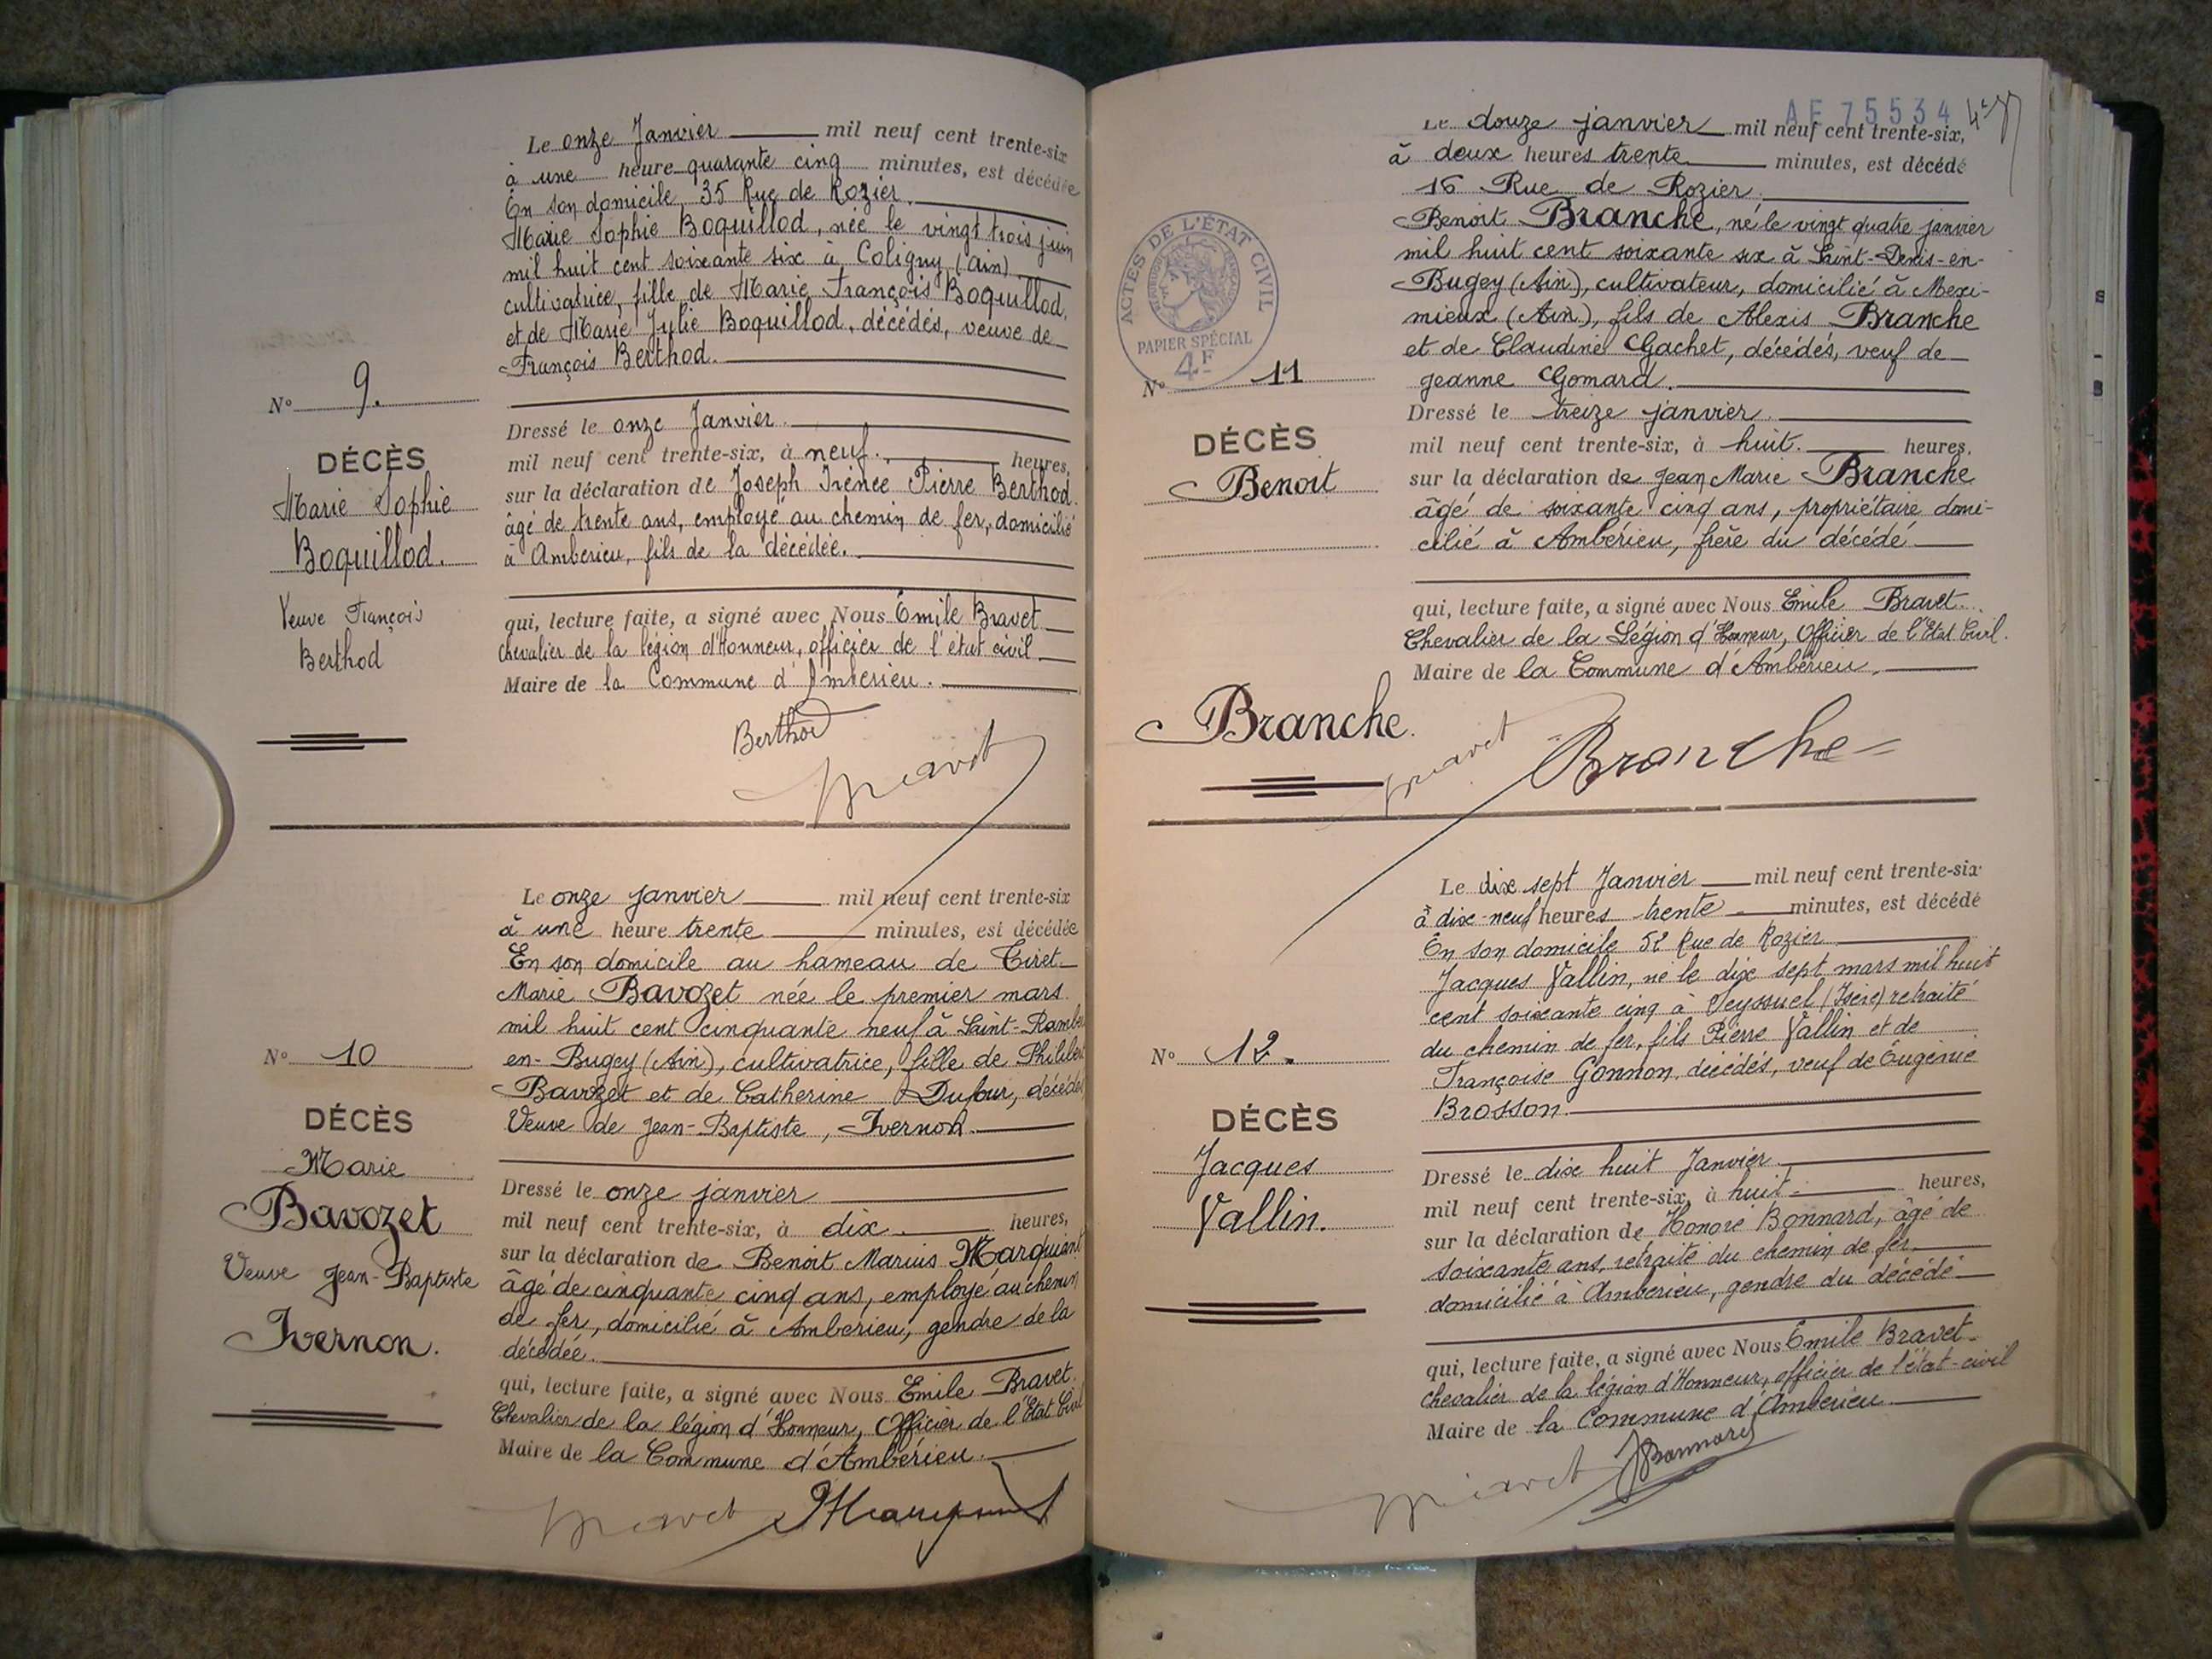 Le onze Janvier mil neuf cent trente-six
à une heure quarante cinq minutes, est décédée
En son domicile, 35 Rue de Rozier.
Marie Sophie Boquillod, née le vingt trois juin
mil huit cent soixante six à Coligny (Ain)
cultivatrice, fille de Marie François Boquillod,
et de Marie Julie Boquillod, décédés, veuve de
François Berthod.
N° 9.
DÉCÈS
Marie Sophie
Boquillod.
Veuve François
Berthod
Dressé le onze Janvier
mil neuf cent trente-six, à neuf. heures,
sur la déclaration de Joseph Irénée Pierre Berthod.
âgé de trente ans, employé au chemin de fer, domicilié
à Ambérieu, fils de la décédée.
qui, lecture faite, a signé avec Nous Emile Bravet
chevalier de la légion d'Honneur, officier de l'état civil
Maire de la Commune d'Ambérieu.
Berthod
Bravet
Le onze janvier mil neuf cent trente-six
à une heure trente minutes, est décédée
En son domicile au hameau de Tiret
Marie Bavozet née le premier mars
mil huit cent cinquante neuf à Saint-Rambe
en-Bugey (Ain), cultivatrice, fille de Philiber
Bavozet et de Catherine Dufour, décédés
Veuve de Jean-Baptiste, Ivernon.
N° 10
DÉCÈS
Marie
Bavozet
Veuve Jean-Baptiste
Ivernon.
Dressé le onze janvier
mil neuf cent trente-six, à dix. heures,
sur la déclaration de Benoit Marius Marquiant
âgé de cinquante cinq ans, employé au chemin
de fer, domicilié à Amberieu, gendre de la
décédée.
qui, lecture faite, a signé avec Nous Emile Bravet.
Chevalier de la légion d'Honneur, Officier de l'Etat Civil
Maire de la Commune d'Ambérieu.
Bravet
AE 75534
Le douze janvier mil neuf cent trente-six,
à deux heures trente minutes, est décédé
16 Rue de Rozier.
Benoit Branche, né le vingt quatre janvier
mil huit cent soixante six à Saint-Denis-en-
Bugey (Ain), cultivateur, domicilié à Mexi-
mieux (Ain), fils de Alexis Branche
et de Claudine Gachet, décédés, veuf de
Jeanne Gomard.
ACTES DE L'ÉTAT CIVIL
PAPIER SPÉCIAL
4F
N° 11
DÉCÈS
Benoit
Branche.
Dressé le treize janvier
mil neuf cent trente-six, à huit. heures,
sur la déclaration de Jean Marie Branche
âgé de soixante cinq ans, propriétaire domi-
cilié à Ambérieu, frère du décédé
qui, lecture faite, a signé avec Nous Emile Bravet.
Chevalier de la Légion d'Honneur, Officier de l'Etat Civil.
Maire de la Commune d'Ambérieu.
Bravet Branche
Le dix sept Janvier mil neuf cent trente-six
à dix-neuf heures trente minutes, est décédé
En son domicile 52 Rue de Rozier
Jacques Vallin, né le dix sept mars mil huit
cent soixante cinq à Seyssuel (Isère) retraité
du chemin de fer, fils Pierre Vallin et de
Françoise Gonnon, décédés, veuf de Eugénie
Brosson.
N° 12.
DÉCÈS
Jacques
Vallin.
Dressé le dix huit Janvier
mil neuf cent trente-six, à huit heures,
sur la déclaration de Honoré Bonnard, âgé de
soixante ans, retraité du chemin de fer
domicilié à Ambérieu, gendre du décédé
qui, lecture faite, a signé avec Nous Emile Bravet
chevalier de la légion d'Honneur, officier de l'état-civil
Maire de la Commune d'Ambérieu
Bravet Bonnard